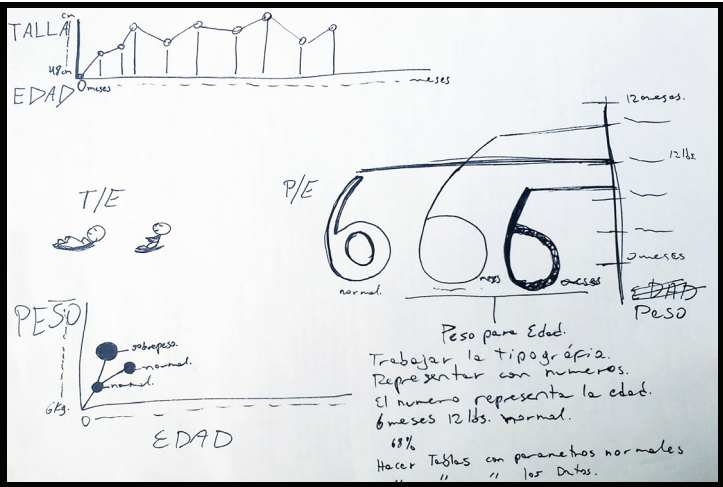 TALLA cm
48cm
0 meses
meses
EDAD
T/E
P/E
12 meses.
12 lbs.
0 meses
EDAD
Peso
666
normal.
meses
meses
PESO
sobrepeso.
normal.
normal.
6Kg.
0
EDAD
Peso para Edad.
Trabajar la tipográfia.
Representar con numeros.
El numero representa la edad.
6 meses 12 lbs. normal.
68%
Hacer Tablas con parametros normales
" " " los Datos.